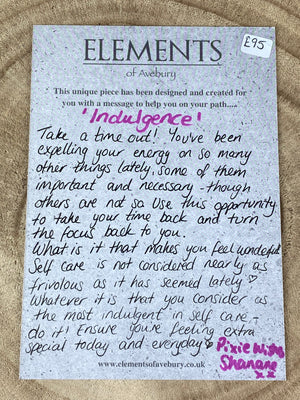 £95
ELEMENTS
of Avebury
This unique piece has been designed and created for
you with a message to help you on your path....
'Indulgence'
Take a time out! You've been
expelling your energy on so many
other things lately, some of them
important and necessary - though
others are not so. Use this opportunity
to take your time back and turn
the focus back to you.
What is it that makes you feel wonderful?
Self care is not considered nearly as
frivolous as it has seemed lately ♡
Whatever it is that you consider as
the most indulgent in self care,-
do it! Ensure you're feeling extra
special today and everyday ♡
Pixie Wishes
Shanane
x x
www.elementsofavebury.co.uk